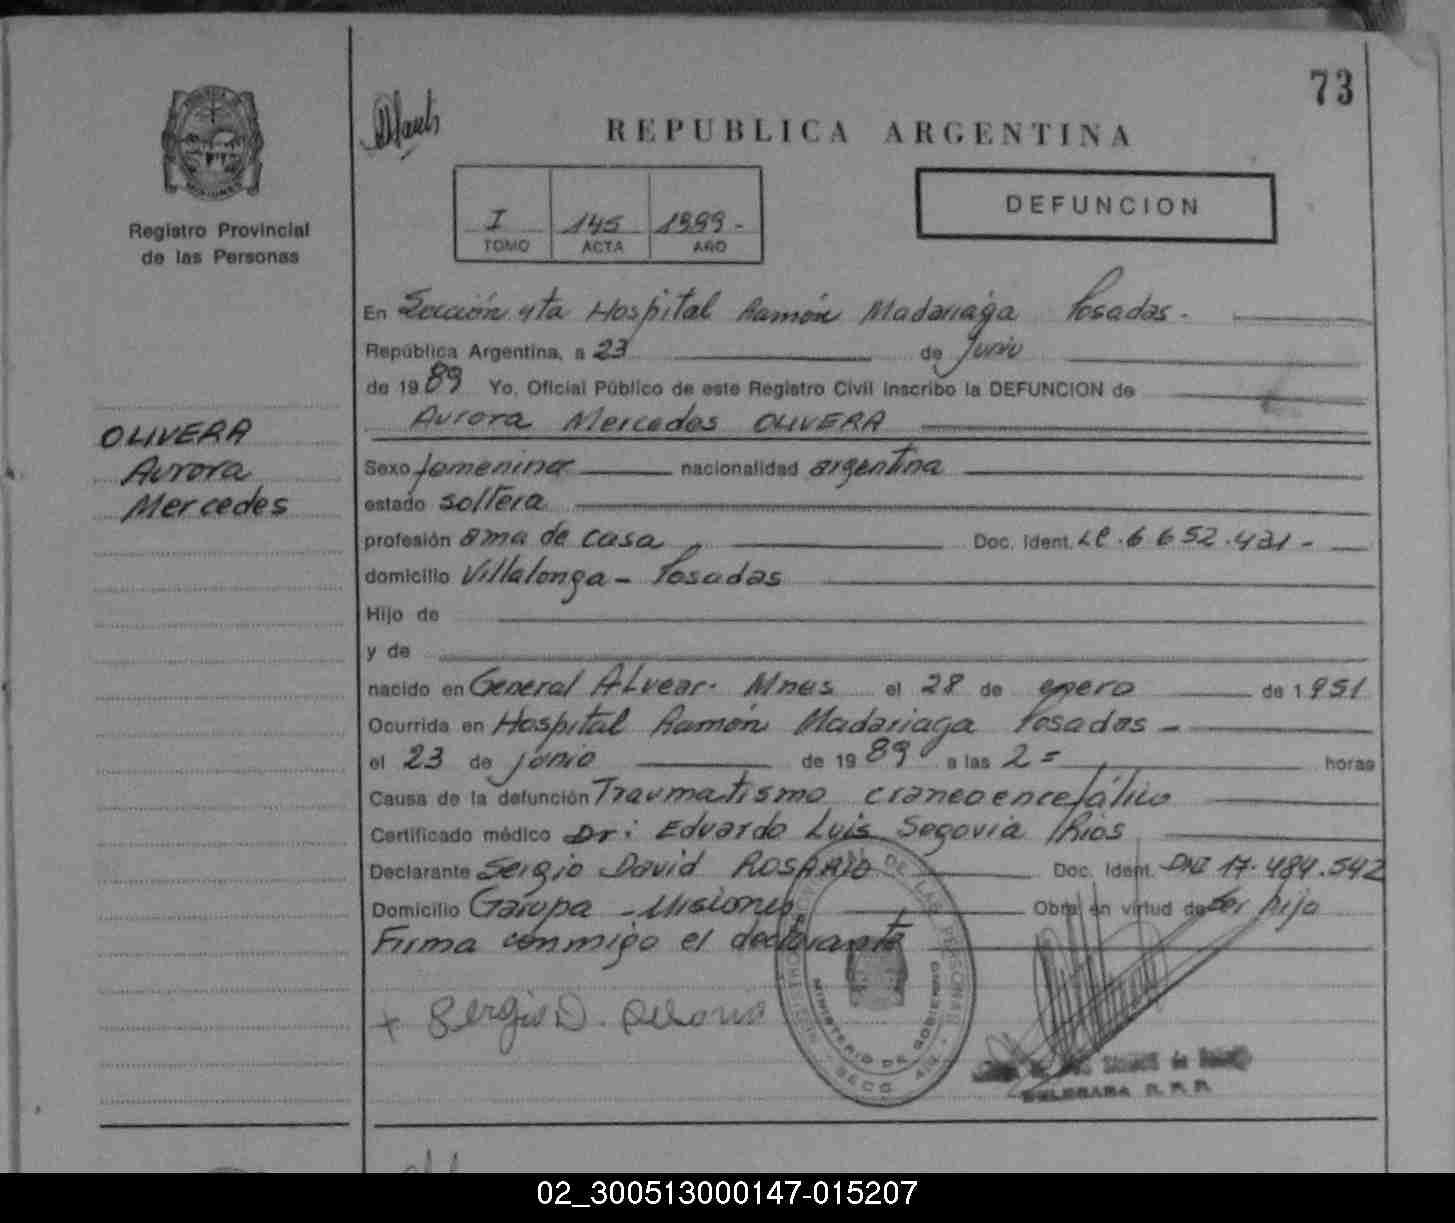 73
REPUBLICA ARGENTINA
DEFUNCION
I 145 1989 -
TOMO ACTA AÑO
Registro Provincial
de las Personas
OLIVERA
Aurora
Mercedes
En Sección 4ta Hospital Ramón Madariaga Posadas -
República Argentina, a 23 de Junio
de 19 89 Yo, Oficial Público de este Registro Civil Inscribo la DEFUNCION de
Aurora Mercedes OLIVERA
Sexo femenina nacionalidad argentina
estado soltera
profesión ama de casa Doc. Ident. LC. 6 652.421 -
domicilio Villalonga - Posadas
Hijo de
y de
nacido en General Alvear. Mnes el 28 de enero de 1951
Ocurrida en Hospital Ramón Madariaga Posadas -
el 23 de junio de 19 89 a las 2 = horas
Causa de la defunción Traumatismo craneoencefálico
Certificado médico Dr: Eduardo Luis Segovia Rios
Declarante Sergio David ROSARIO Doc. Ident. DNI 17.484.542
Domicilio Garupa - Misiones Obra en virtud de Ser hijo
Firma conmigo el declarante
+ Sergio D.
DE LAS PERSONAS
MINISTERIO DE GOBIERNO
MISIONES
SECC. 4ta.
DELEGADA R. P. P.
02_300513000147-015207